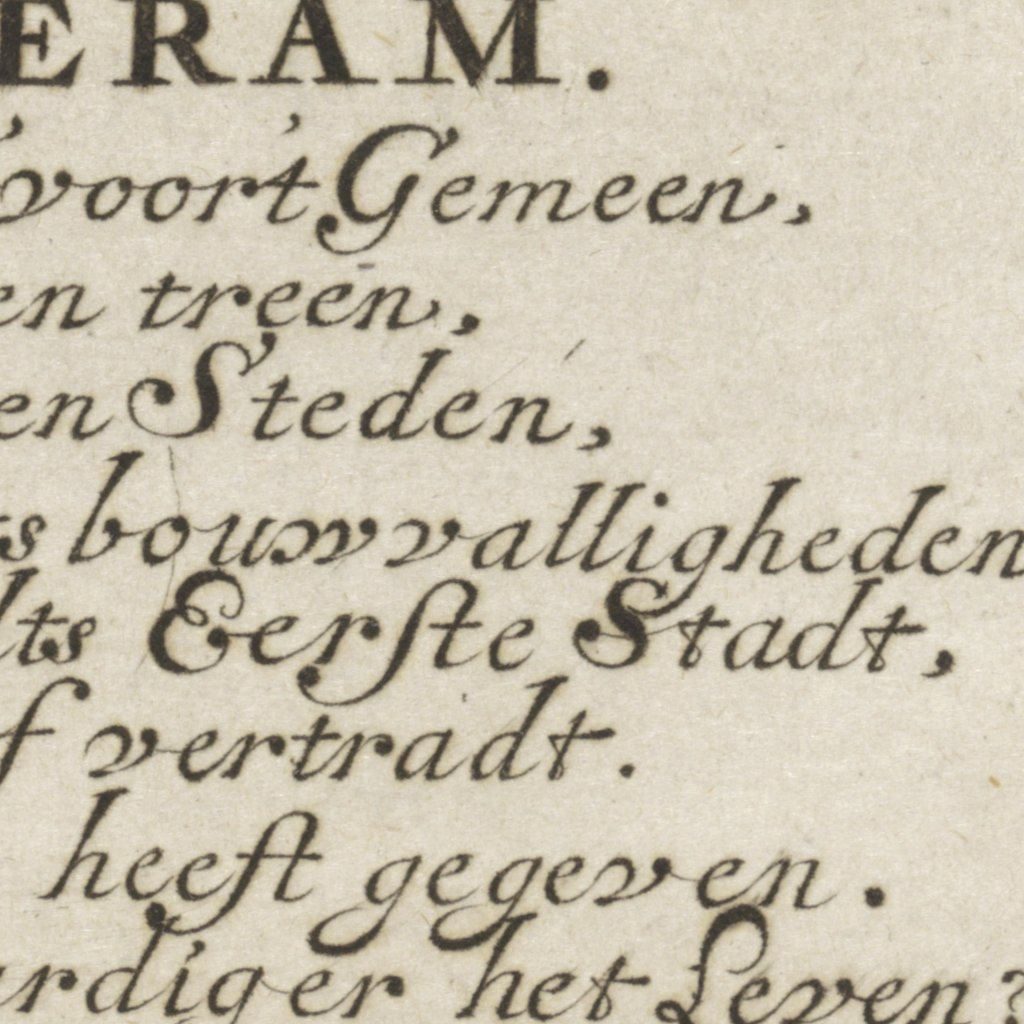 ERAM.
'voort Gemeen,
en treen,
en Steden,
ts bouwvalligheden
lts Eerſte Stadt,
f vertradt.
heeft gegeven.
rdiger het Leven?